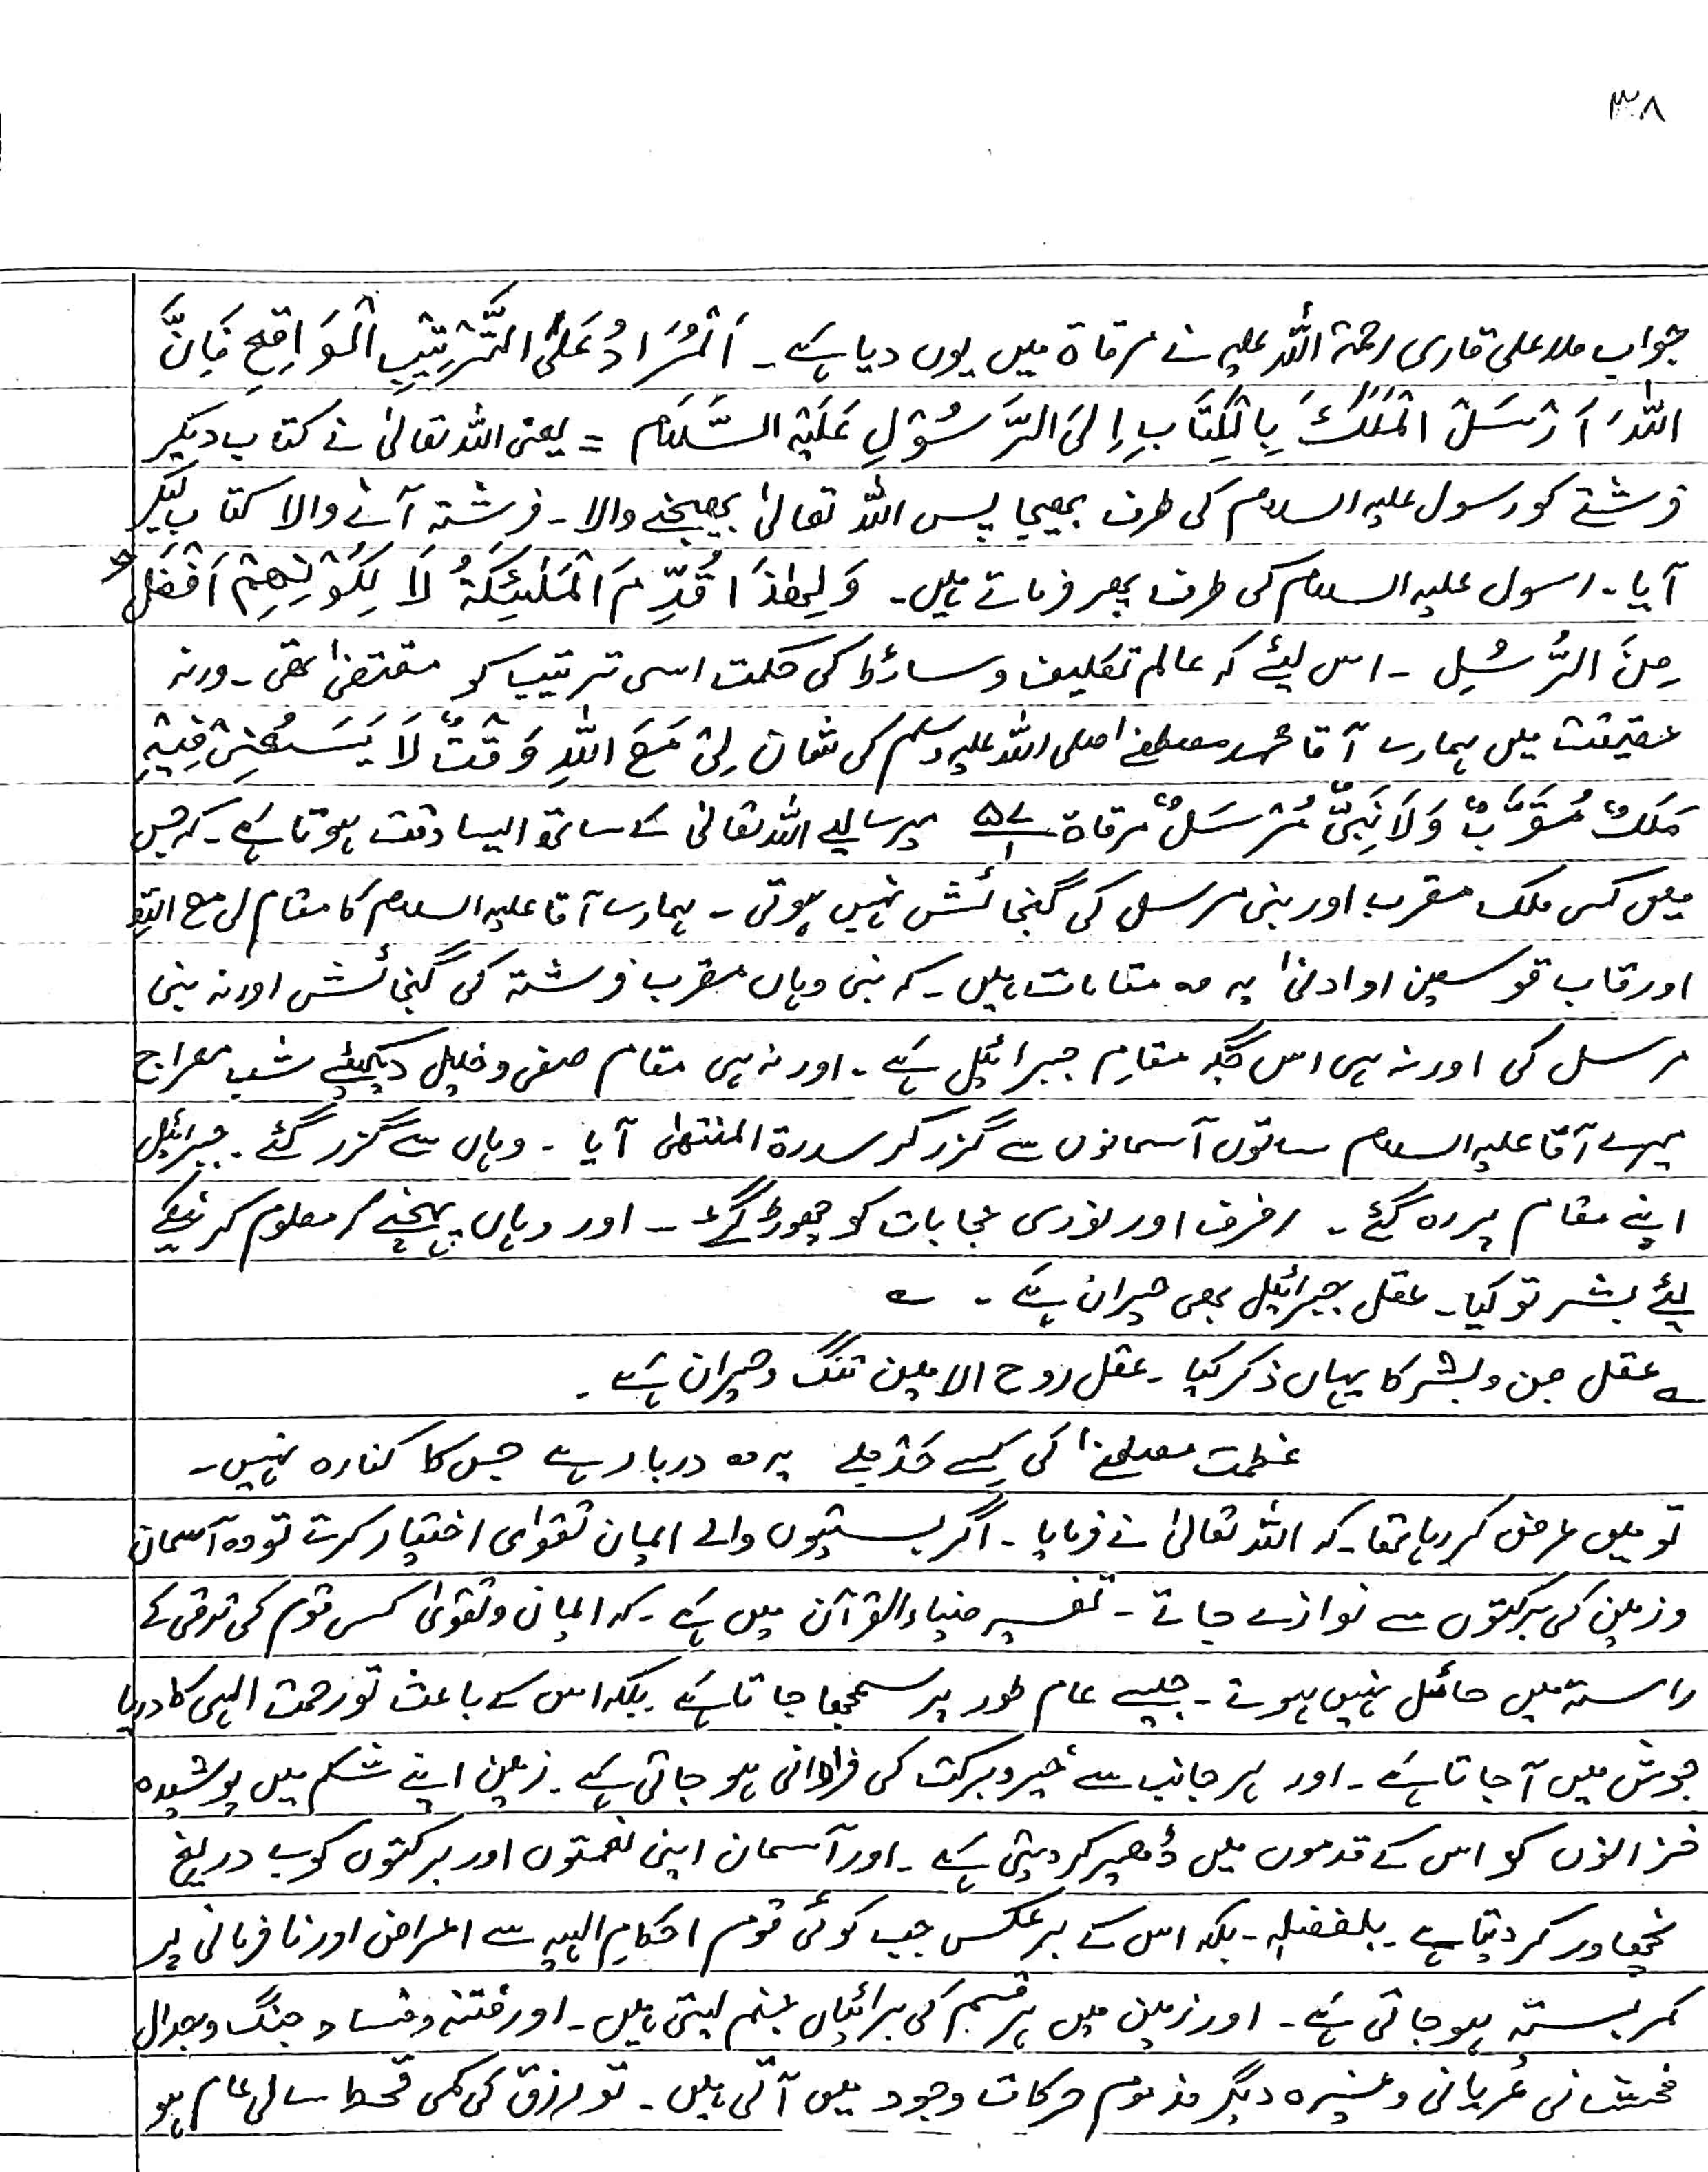 ۳۸
جواب ملا علی قاری رحمۃ اللہ علیہ نے مرقاۃ میں یوں دیا ہے۔ اَلْمُرَادُ عَلَی التَّرْتِیْبِ الْوَاقِعِ فَاِنَّ
اللہَ اَرْسَلَ الْمَلَکَ بِالْکِتَابِ اِلیَ الرَّسُوْلِ عَلَیْہِ السَّلَام = یعنی اللہ تعالیٰ نے کتاب دیکر
فرشتے کو رسول علیہ السلام کی طرف بھیجا پس اللہ تعالیٰ بھیجنے والا۔ فرشتہ آنے والا کتاب لیکر
آیا۔ رسول علیہ السلام کی طرف پھر فرماتے ہیں۔ وَلِھٰذَا قُدِّمَ الْمَلٰئِکَۃُ لَا لِکَوْنِھِمْ اَفْضَلُ
مِنَ الرُّسُلِ ۔ اس لیئے کہ عالم تکلیف وسائط کی حکمت اسی ترتیب کو مقتضیٰ تھی۔ ورنہ
حقیقت میں ہمارے آقا محمد مصطفےٰ صلی اللہ علیہ وسلم کی شان لِیْ مَعَ اللہِ وَقْتٌ لَا یَسَعُنِیْ فِیْہِ
مَلَکٌ مُقَرَّبٌ وَلَا نَبِیٌّ مُرْسَلٌ مرقاۃ ۵۷/۱ میرے لیے اللہ تعالیٰ کے ساتھ ایسا وقت ہوتا ہے۔ کہ جس
میں کسی ملک مقرب اور نبی مرسل کی گنجائش نہیں ہوتی۔ ہمارے آقا علیہ السلام کا مقام لی مع اللہ
اور قاب قوسین او ادنیٰ یہ وہ مقامات ہیں۔ کہ نبی وہاں مقرب فرشتہ کی گنجائش اور نہ نبی
مرسل کی اور نہ ہی اس جگہ مقامِ جبرائیل ہے۔ اور نہ ہی مقام صفی و خلیل دیکھئے شب معراج
میرے آقا علیہ السلام ساتوں آسمانوں سے گزر کر سدرۃ المنتھٰی آیا۔ وہاں سے گزر گئے۔ جبرائیل
اپنے مقام پر رہ گئے۔ رفرف اور نوری حجابات کو چھوڑ گئے۔ اور وہاں پہنچے معلوم کرنیکے
لیئے بشر تو کیا۔ عقل جبرائیل بھی حیران ہے۔
عقل جن و بشر کا یہاں ذکر کیا۔ عقل روح الامین تنگ و حیران ہے۔
عظمت مصطفےٰ کی کیسے حد ملے یہ وہ دریا ہے جس کا کنارہ نہیں۔
تو میں عرض کر رہا تھا۔ کہ اللہ تعالیٰ نے فرمایا۔ اگر بستیوں والے ایمان تقوای اختیار کرتے تو وہ آسمان
و زمین کی برکتوں سے نوازے جاتے۔ تفسیر ضیاء القرآن میں ہے۔ کہ ایمان و تقویٰ کسی قوم کی ترقی کے
راستہ میں حائل نہیں ہوتے۔ جیسے عام طور پر سمجھا جاتا ہے۔ بلکہ اس کے باعث تو رحمت الہی کا دریا
جوش میں آجاتا ہے۔ اور ہر جانب سے خیر و برکت کی فراوانی ہو جاتی ہے۔ زمین اپنے شکم میں پوشیدہ
خزانوں کو اس کے قدموں میں ڈھیر کر دیتی ہے۔ اور آسمان اپنی نعمتوں اور برکتوں کو بے دریغ
نچھاور کر دیتا ہے۔ بلفضلہٖ۔ بلکہ اس کے برعکس جب کوئی قوم احکامِ الہیہ سے اعراض اور نافرمانی پر
کمر بستہ ہو جاتی ہے۔ اور زمین میں ہر قسم کی برائیاں جنم لیتی ہیں۔ اور فتنہ و فساد و جنگ و جدال
فحشانی عُریانی وغیرہ دیگر مذموم حرکات وجود میں آتی ہیں۔ تو رزق کی کمی قحط سالی عام ہو